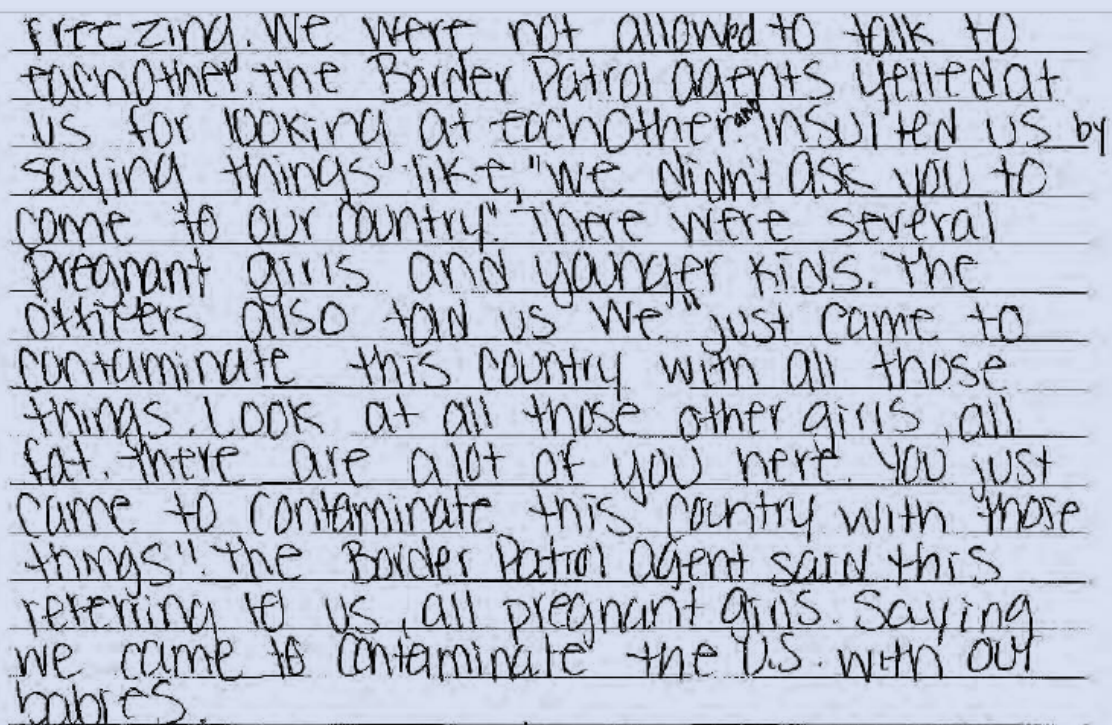 freezing. We were not allowed to talk to
eachother. the Border Patrol agents yelled at
us for looking at eachother and insulted us by
saying things like, "we didn't ask you to
come to our country". There were several
pregnant girls and younger kids. The
officers also told us we "just came to
contaminate this country with all those
things. Look at all those other girls, all
fat. There are alot of you here. You just
came to contaminate this country with those
things". The Border Patrol Agent said this
referring to us, all pregnant girls. Saying
we came to contaminate the U.S. with our
babies.